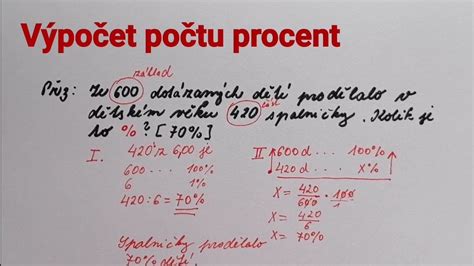 Výpočet počtu procent
základ
Př13: Ze 600 dotázaných dětí prodělalo v
dětském věku 420 spalničky. Kolik je
část
to %? [70%]
I.
420 z 600 je
600 ... 100%
6 1%
420:6 = 70%
II
600 d ... 100%
420 d ... X%
X = 420/600 · 100/1
X = 420/6
X = 70%
Spalničky prodělalo
70% dětí.